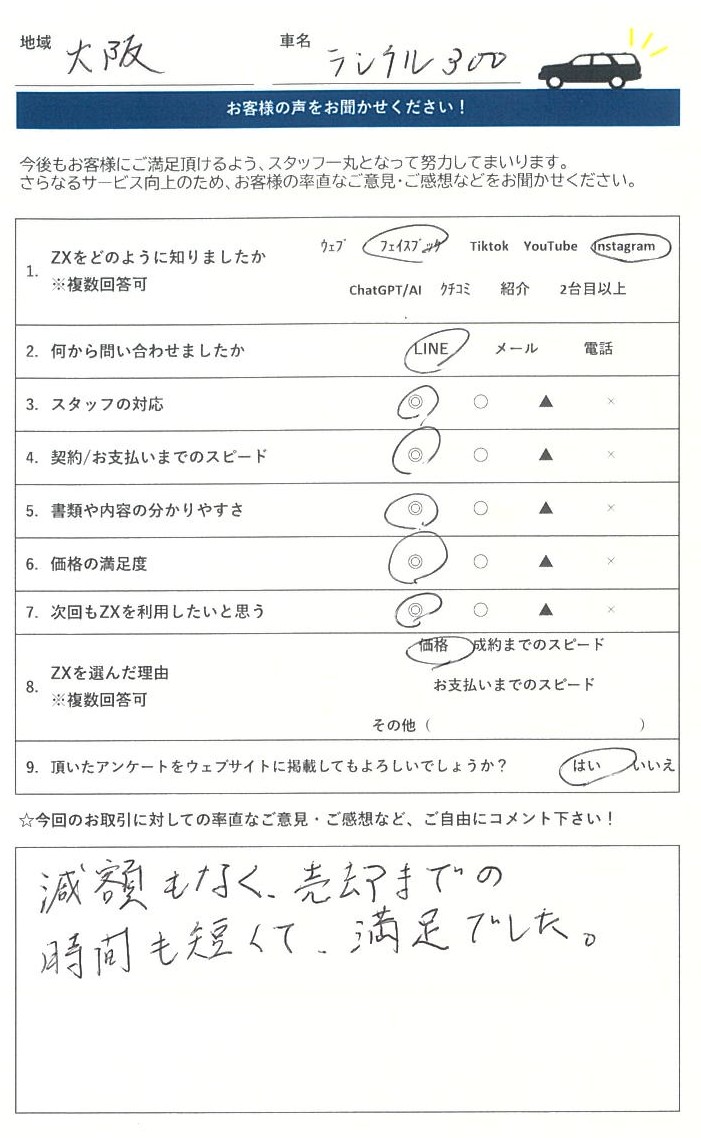 地域 大阪 車名 ランクル300
お客様の声をお聞かせください！
今後もお客様にご満足頂けるよう、スタッフ一丸となって努力してまいります。
さらなるサービス向上のため、お客様の率直なご意見・ご感想などをお聞かせください。
1. ZXをどのように知りましたか
※複数回答可
ウェブ フェイスブック Tiktok YouTube Instagram
ChatGPT/AI クチコミ 紹介 2台目以上
2. 何から問い合わせましたか LINE メール 電話
3. スタッフの対応 ◎ ○ ▲ ×
4. 契約/お支払いまでのスピード ◎ ○ ▲ ×
5. 書類や内容の分かりやすさ ◎ ○ ▲ ×
6. 価格の満足度 ◎ ○ ▲ ×
7. 次回もZXを利用したいと思う ◎ ○ ▲ ×
8. ZXを選んだ理由
※複数回答可
価格 成約までのスピード
お支払いまでのスピード
その他（ ）
9. 頂いたアンケートをウェブサイトに掲載してもよろしいでしょうか？ はい いいえ
☆今回のお取引に対しての率直なご意見・ご感想など、ご自由にコメント下さい！
減額もなく、売却までの
時間も短くて、満足でした。